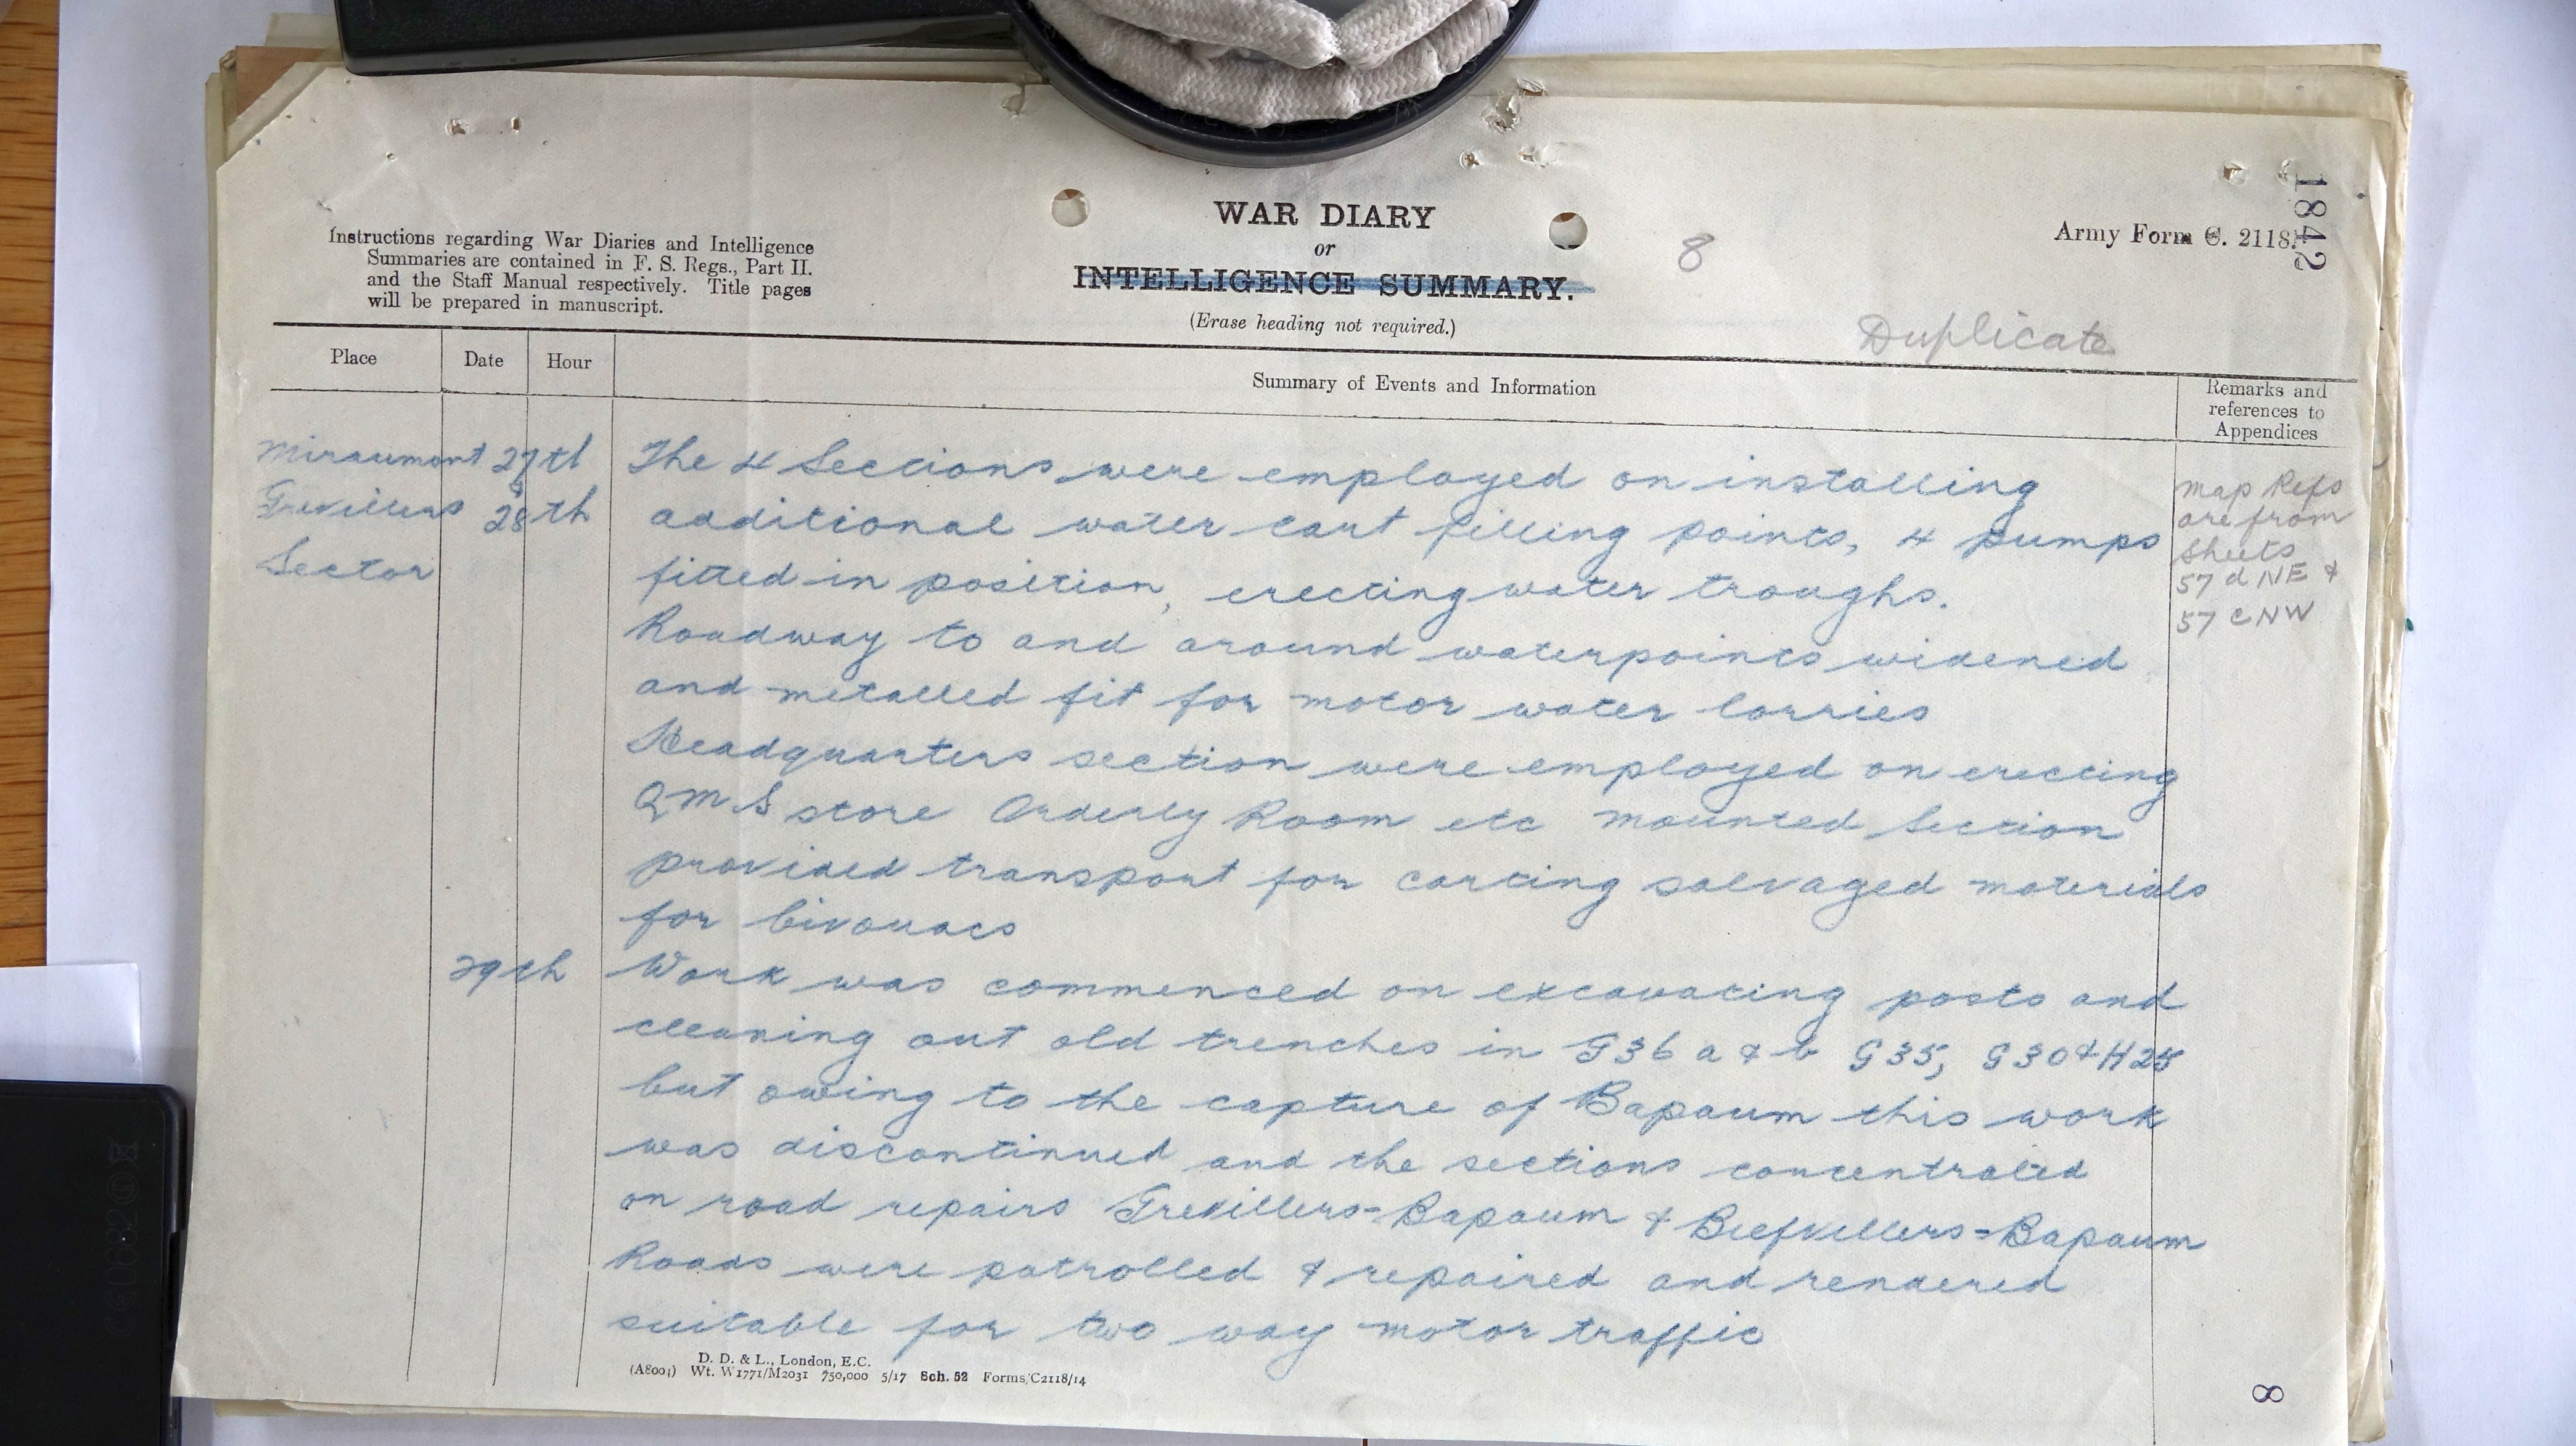 1842
Instructions regarding War Diaries and Intelligence
Summaries are contained in F. S. Regs., Part II.
and the Staff Manual respectively. Title pages
will be prepared in manuscript.
WAR DIARY
or
INTELLIGENCE SUMMARY.
(Erase heading not required.)
8
Army Form C. 2118.
Duplicate
Place Date Hour Summary of Events and Information Remarks and
references to
Appendices
Miraumont 27th The 4 Sections were employed on installing
Grevillers 28th additional water cart filling points, 4 pumps
Sector fitted in position, erecting water troughs.
Roadway to and around waterpoints widened
and metalled fit for motor water lorries
Headquarters section were employed on erecting
QMS store Orderly Room etc mounted Section
provided transport for carting salvaged materials
for bivouacs
29th Work was commenced on excavating posts and
cleaning out old trenches in G36 a & b G35, G30 & H25
but owing to the capture of Bapaum this work
was discontinued and the sections concentrated
on road repairs Grevillers-Bapaum & Biefvillers=Bapaum
Roads were patrolled & repaired and rendered
suitable for two way motor traffic
Map Refs
are from
Sheets
57 d NE &
57 c NW
D. D. & L., London, E.C.
(A8004) Wt. W1771/M2031 750,000 5/17 Sch. 52 Forms/C2118/14
8